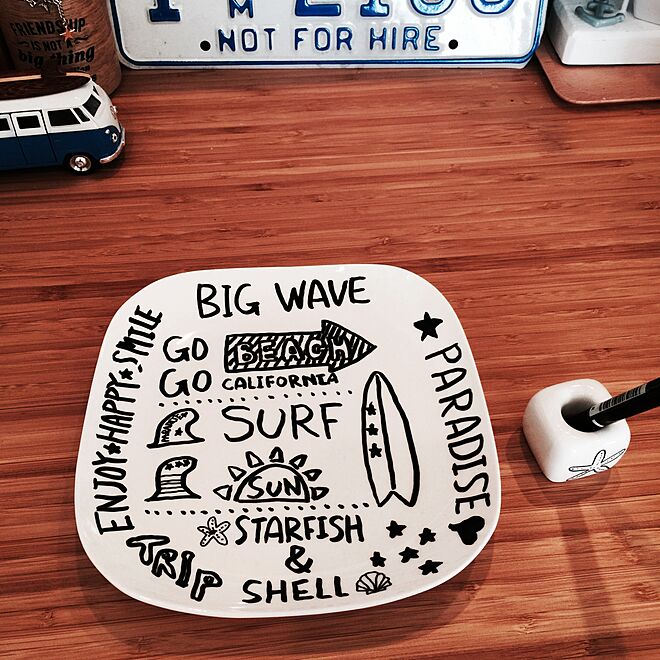 FRIENDSHIP
IS NOT A
big thing
NOT FOR HIRE
BIG WAVE
GO BEACH
GO CALIFORNIA
SURF
SUN
STARFISH
&
SHELL
TRIP
ENJOY HAPPY SMILE
PARADISE